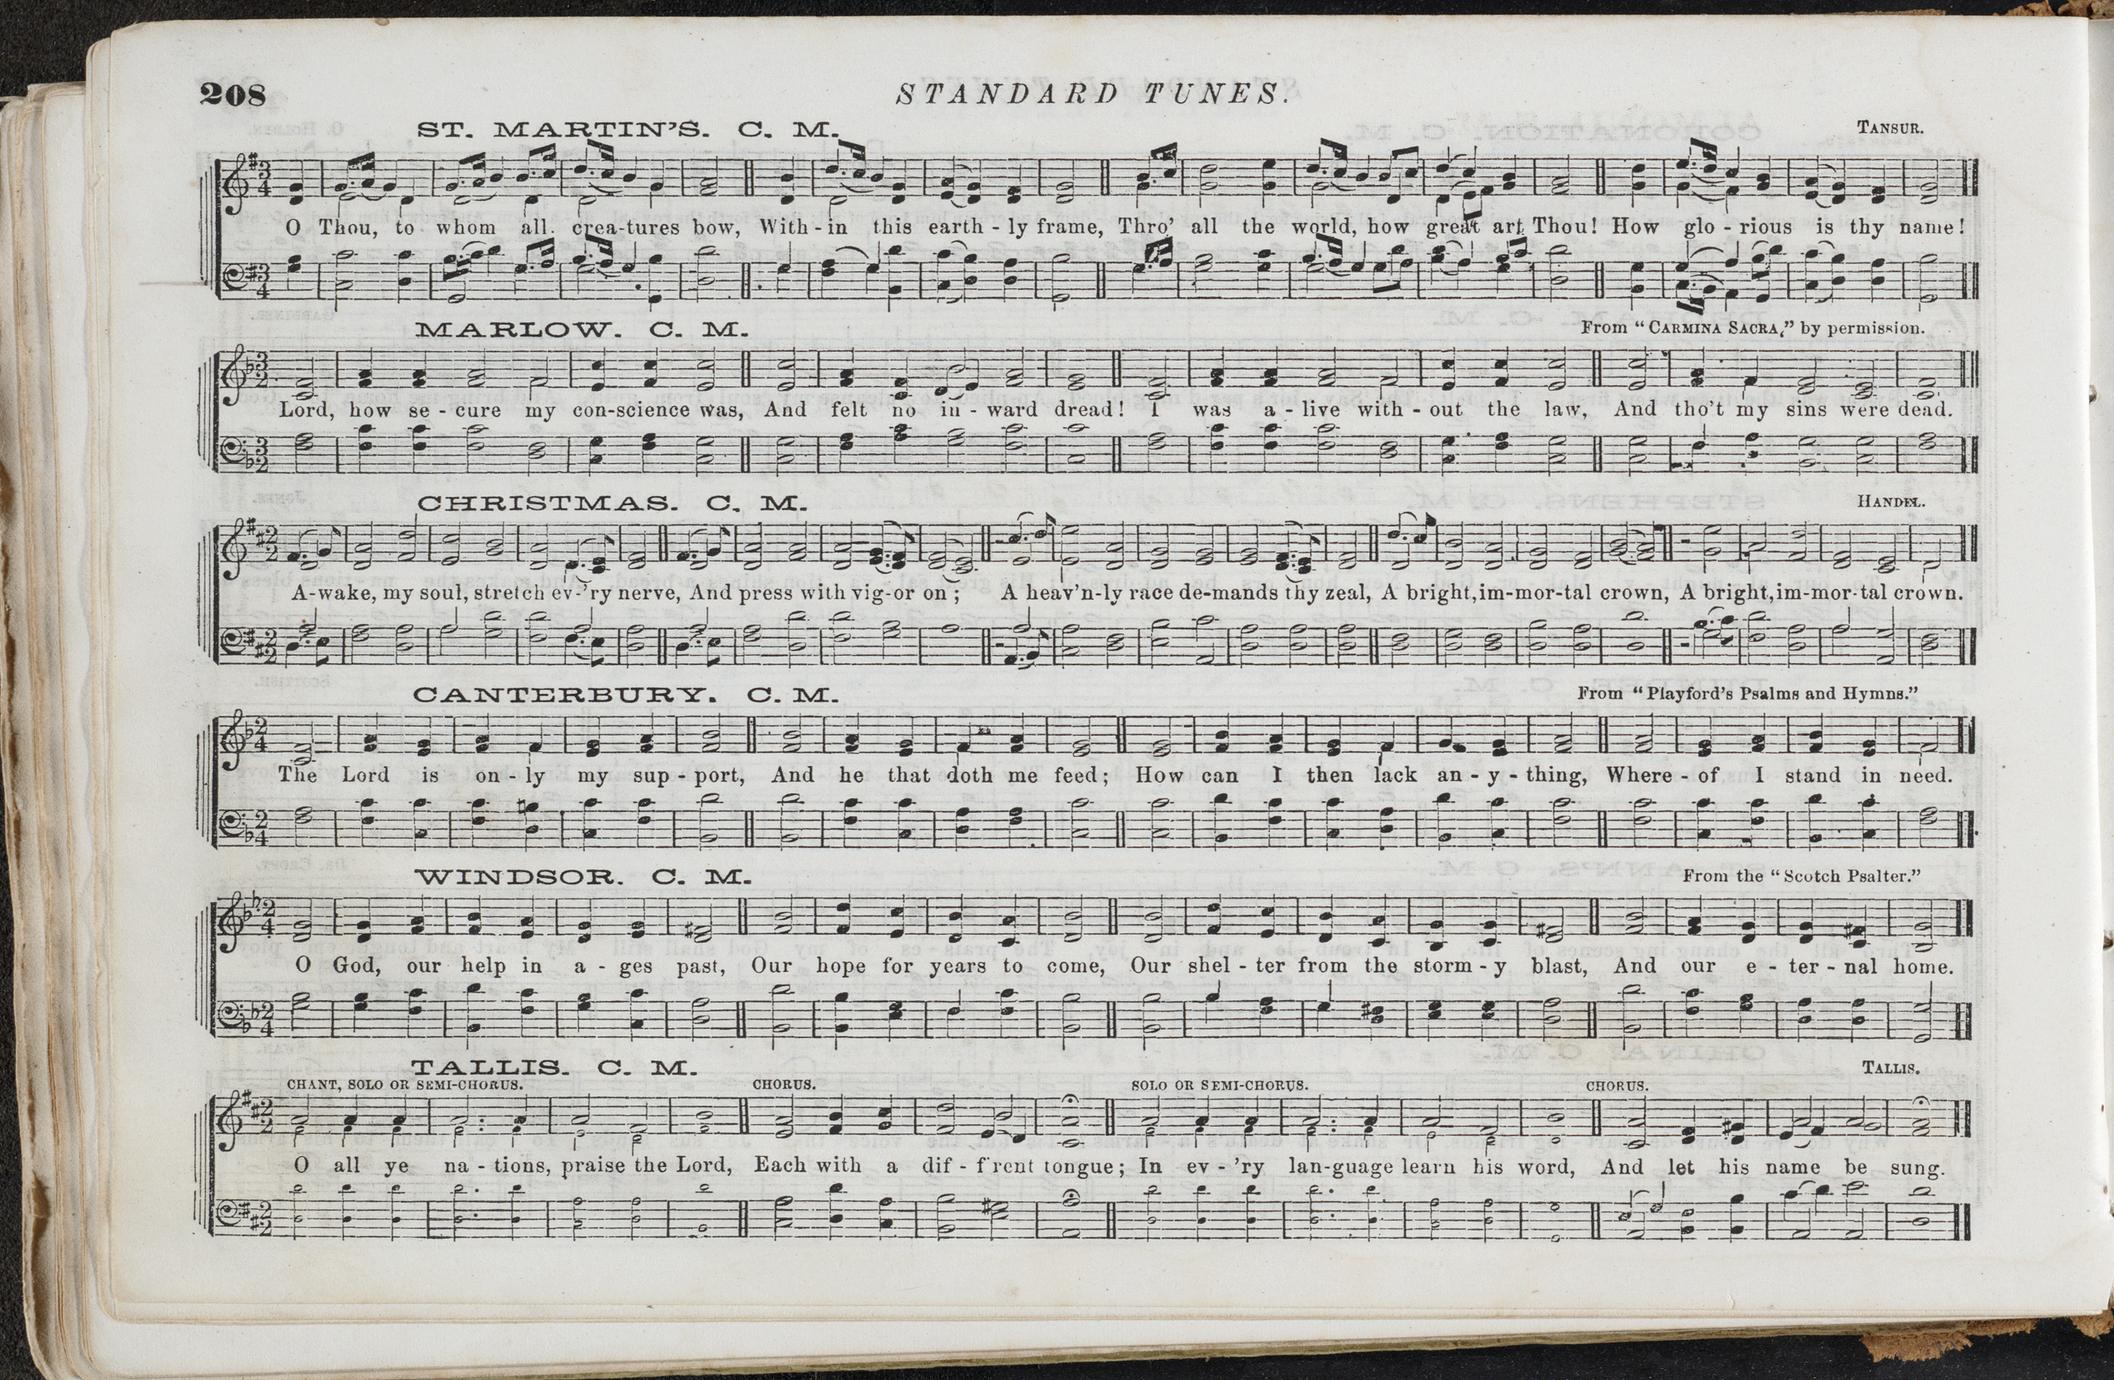 208
STANDARD TUNES.
ST. MARTIN'S. C. M.
TANSUR.
O Thou, to whom all crea-tures bow, With-in this earth-ly frame, Thro' all the world, how great art Thou! How glo-rious is thy name!
MARLOW. C. M.
From "CARMINA SACRA," by permission.
Lord, how se-cure my con-science was, And felt no in-ward dread! I was a-live with-out the law, And tho't my sins were dead.
CHRISTMAS. C. M.
HANDEL.
A-wake, my soul, stretch ev-'ry nerve, And press with vig-or on; A heav'n-ly race de-mands thy zeal, A bright, im-mor-tal crown, A bright, im-mor-tal crown.
CANTERBURY. C. M.
From "Playford's Psalms and Hymns."
The Lord is on-ly my sup-port, And he that doth me feed; How can I then lack an-y-thing, Where-of I stand in need.
WINDSOR. C. M.
From the "Scotch Psalter."
O God, our help in a-ges past, Our hope for years to come, Our shel-ter from the storm-y blast, And our e-ter-nal home.
TALLIS. C. M.
TALLIS.
CHANT, SOLO OR SEMI-CHORUS. CHORUS. SOLO OR SEMI-CHORUS. CHORUS.
O all ye na-tions, praise the Lord, Each with a dif-f'rent tongue; In ev-'ry lan-guage learn his word, And let his name be sung.